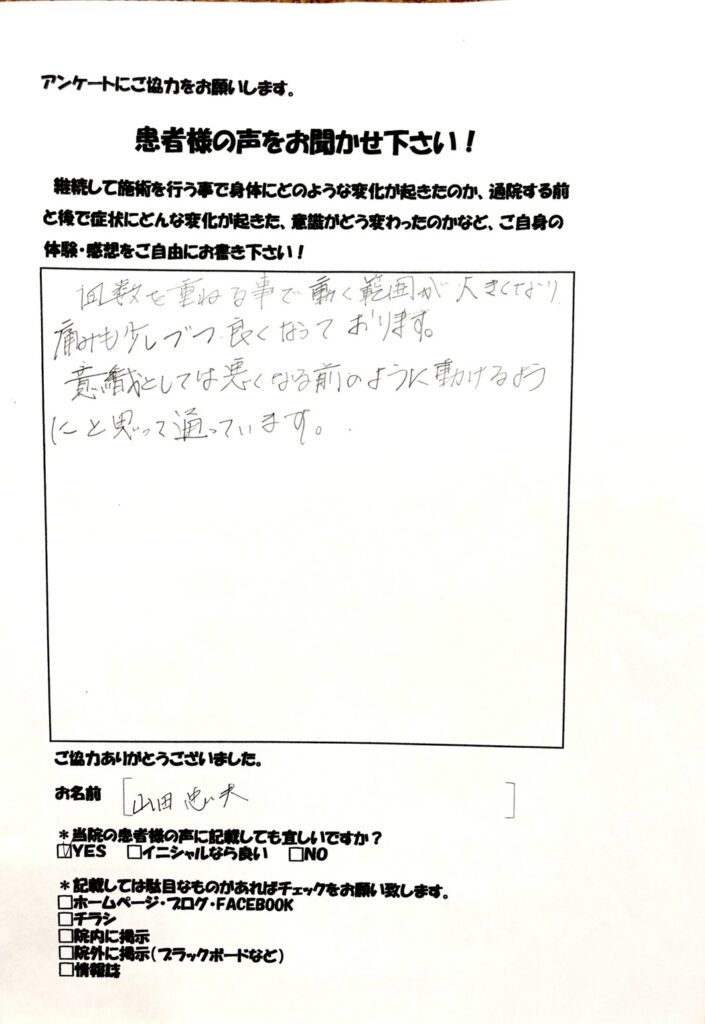 アンケートにご協力をお願いします。
患者様の声をお聞かせ下さい！
継続して施術を行う事で身体にどのような変化が起きたのか、通院する前
と後で症状にどんな変化が起きた、意識がどう変わったのかなど、ご自身の
体験・感想をご自由にお書き下さい！
回数を重ねる事で動く範囲が大きくなり
痛みも少しづつ良くなって おります。
意識としては悪くなる前のように動けるよう
にと思って通っています。
ご協力ありがとうございました。
お名前 [山田忠夫]
＊当院の患者様の声に記載しても宜しいですか？
☑YES □イニシャルなら良い □NO
＊記載しては駄目なものがあればチェックをお願い致します。
□ホームページ・ブログ・FACEBOOK
□チラシ
□院内に掲示
□院外に掲示（ブラックボードなど）
□情報誌